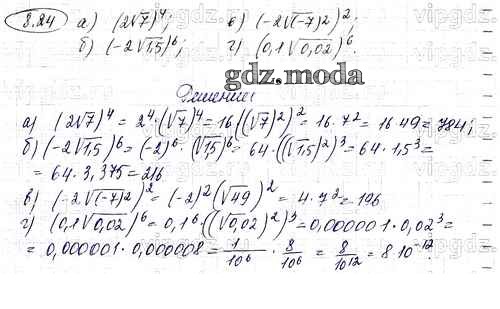 8.24 а) (2√7)⁴; в) (-2√(-7)²)²;
б) (-2√1,5)⁶; г) (0,1√0,02)⁶.
gdz.moda
Решение
а) (2√7)⁴ = 2⁴·(√7)⁴ = 16((√7)²)² = 16·7² = 16·49 = 784;
б) (-2√1,5)⁶ = (-2)⁶·(√1,5)⁶ = 64·((√1,5)²)³ = 64·1,5³ =
= 64·3,375 = 216
в) (-2·√(-7)²)² = (-2)²(√49)² = 4·7² = 196
г) (0,1√0,02)⁶ = 0,1⁶·((√0,02)²)³ = 0,000001·0,02³ =
= 0,000001·0,000008 = 1/10⁶ · 8/10⁶ = 8/10¹² = 8·10⁻¹².